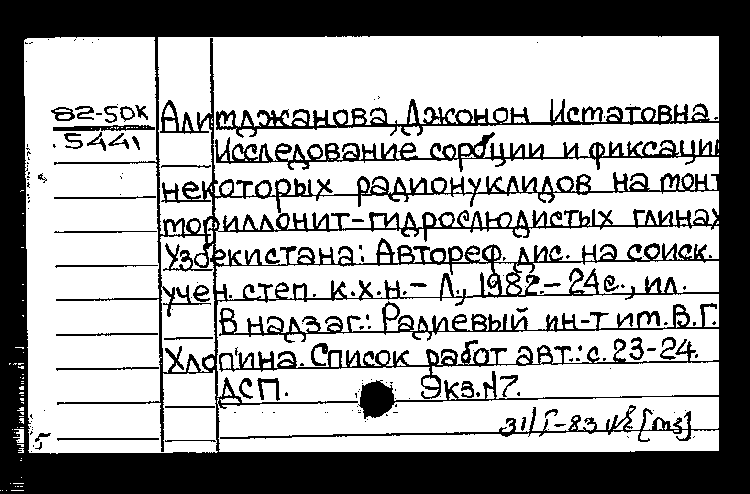 82-50К
5441
Алимджанова, Джонон Исматовна.
Исследование сорбции и фиксации
некоторых радионуклидов на монт
мориллонит-гидрослюдистых глинах
Узбекистана: Автореф. дис. на соиск.
учен. степ. к.х.н.- Л., 1982.- 24с., ил.
В надзаг.: Радиевый ин-т им. В.Г.
Хлопина. Список работ авт.: с. 23-24.
ДСП. Экз.N7.
31/I-83 [мз]
5